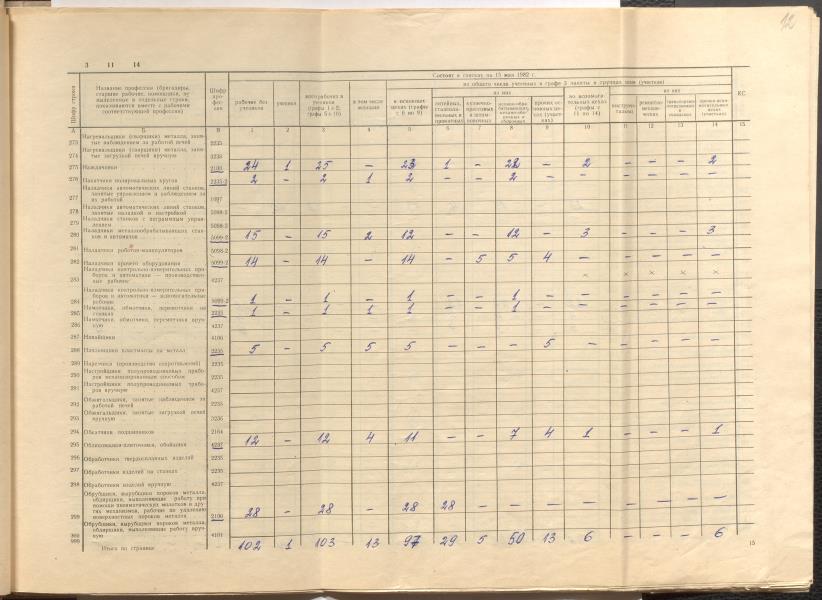 12
3 11 14
Состоит в списках на 15 мая 1982 г.
Шифр строки
Название профессии (бригадиры, старшие рабочие, помощники, не выделенные в отдельные строки, показываются вместе с рабочими соответствующей профессии)
Шифр профессии
рабочие без учеников
ученики
в том числе женщин
из них
из них
КС
А Б В 1 2 3 4 5 6 7 8 9 10 11 12 13 14 15
273 Нагревальщики (сварщики) металла, занятые наблюдением за работой печей 2235
274 Нагревальщики (сварщики) металла, занятые загрузкой печей вручную 3238
275 Наждачники 24 1 25 – 23 1 – 22 – 2 – – – 2
276 Накатчики полировальных кругов 2235-2 2 – 2 1 2 – – 2 – – – – – –
277 Наладчики автоматических линий станков, занятые управлением и наблюдением за их работой 1097
278 Наладчики автоматических линий станков, занятые наладкой и настройкой 5098-2
279 Наладчики станков с программным управлением 5098-2
280 Наладчики металлообрабатывающих станков и автоматов 5099-2 15 – 15 2 12 – – 12 – 3 – – – 3
281 Наладчики роботов-манипуляторов 5098-2
282 Наладчики прочего оборудования 5099-2 14 – 14 – 14 – 5 5 4 – – – – –
283 Наладчики контрольно-измерительных приборов и автоматики — производственные рабочие 4237 × × × × ×
284 Наладчики контрольно-измерительных приборов и автоматики — вспомогательные рабочие 5099-2 1 – 1 – 1 – – 1 – – – – – –
285 Намотчики, обмотчики, перемотчики на станках 2235 1 – 1 1 1 – – 1 – – – – – –
286 Намотчики, обмотчики, перемотчики вручную 4237
287 Навойщики 4106
288 Напылители пластмассы на металл 2235 5 – 5 5 5 – – – 5 – – – – –
289 Нарезчики (производство сопротивлений) 2235
290 Настройщики полупроводниковых приборов механизированным способом 2235
291 Настройщики полупроводниковых приборов вручную 4237
292 Обжигальщики, занятые наблюдением за работой печей 2235
293 Обжигальщики, занятые загрузкой печей вручную 3236
294 Обкатчики подшипников 2164
295 Облицовщики-плиточники, обойщики 4237 12 – 12 4 11 – – 7 4 1 – – – 1
296 Обработчики твердосплавных изделий 2235
297 Обработчики изделий на станках 2235
298 Обработчики изделий вручную 4237
299 Обрубщики, вырубщики пороков металла, обдирщики, выполняющие работу при помощи пневматических молотков и других механизмов, рабочие по удалению поверхностных пороков металла 2100 28 – 28 – 28 28 – – – – – – – –
300 Обрубщики, вырубщики пороков металла, обдирщики, выполняющие работу вручную 4101
999 Итого по странице 102 1 103 13 97 29 5 50 13 6 – – – 6
15